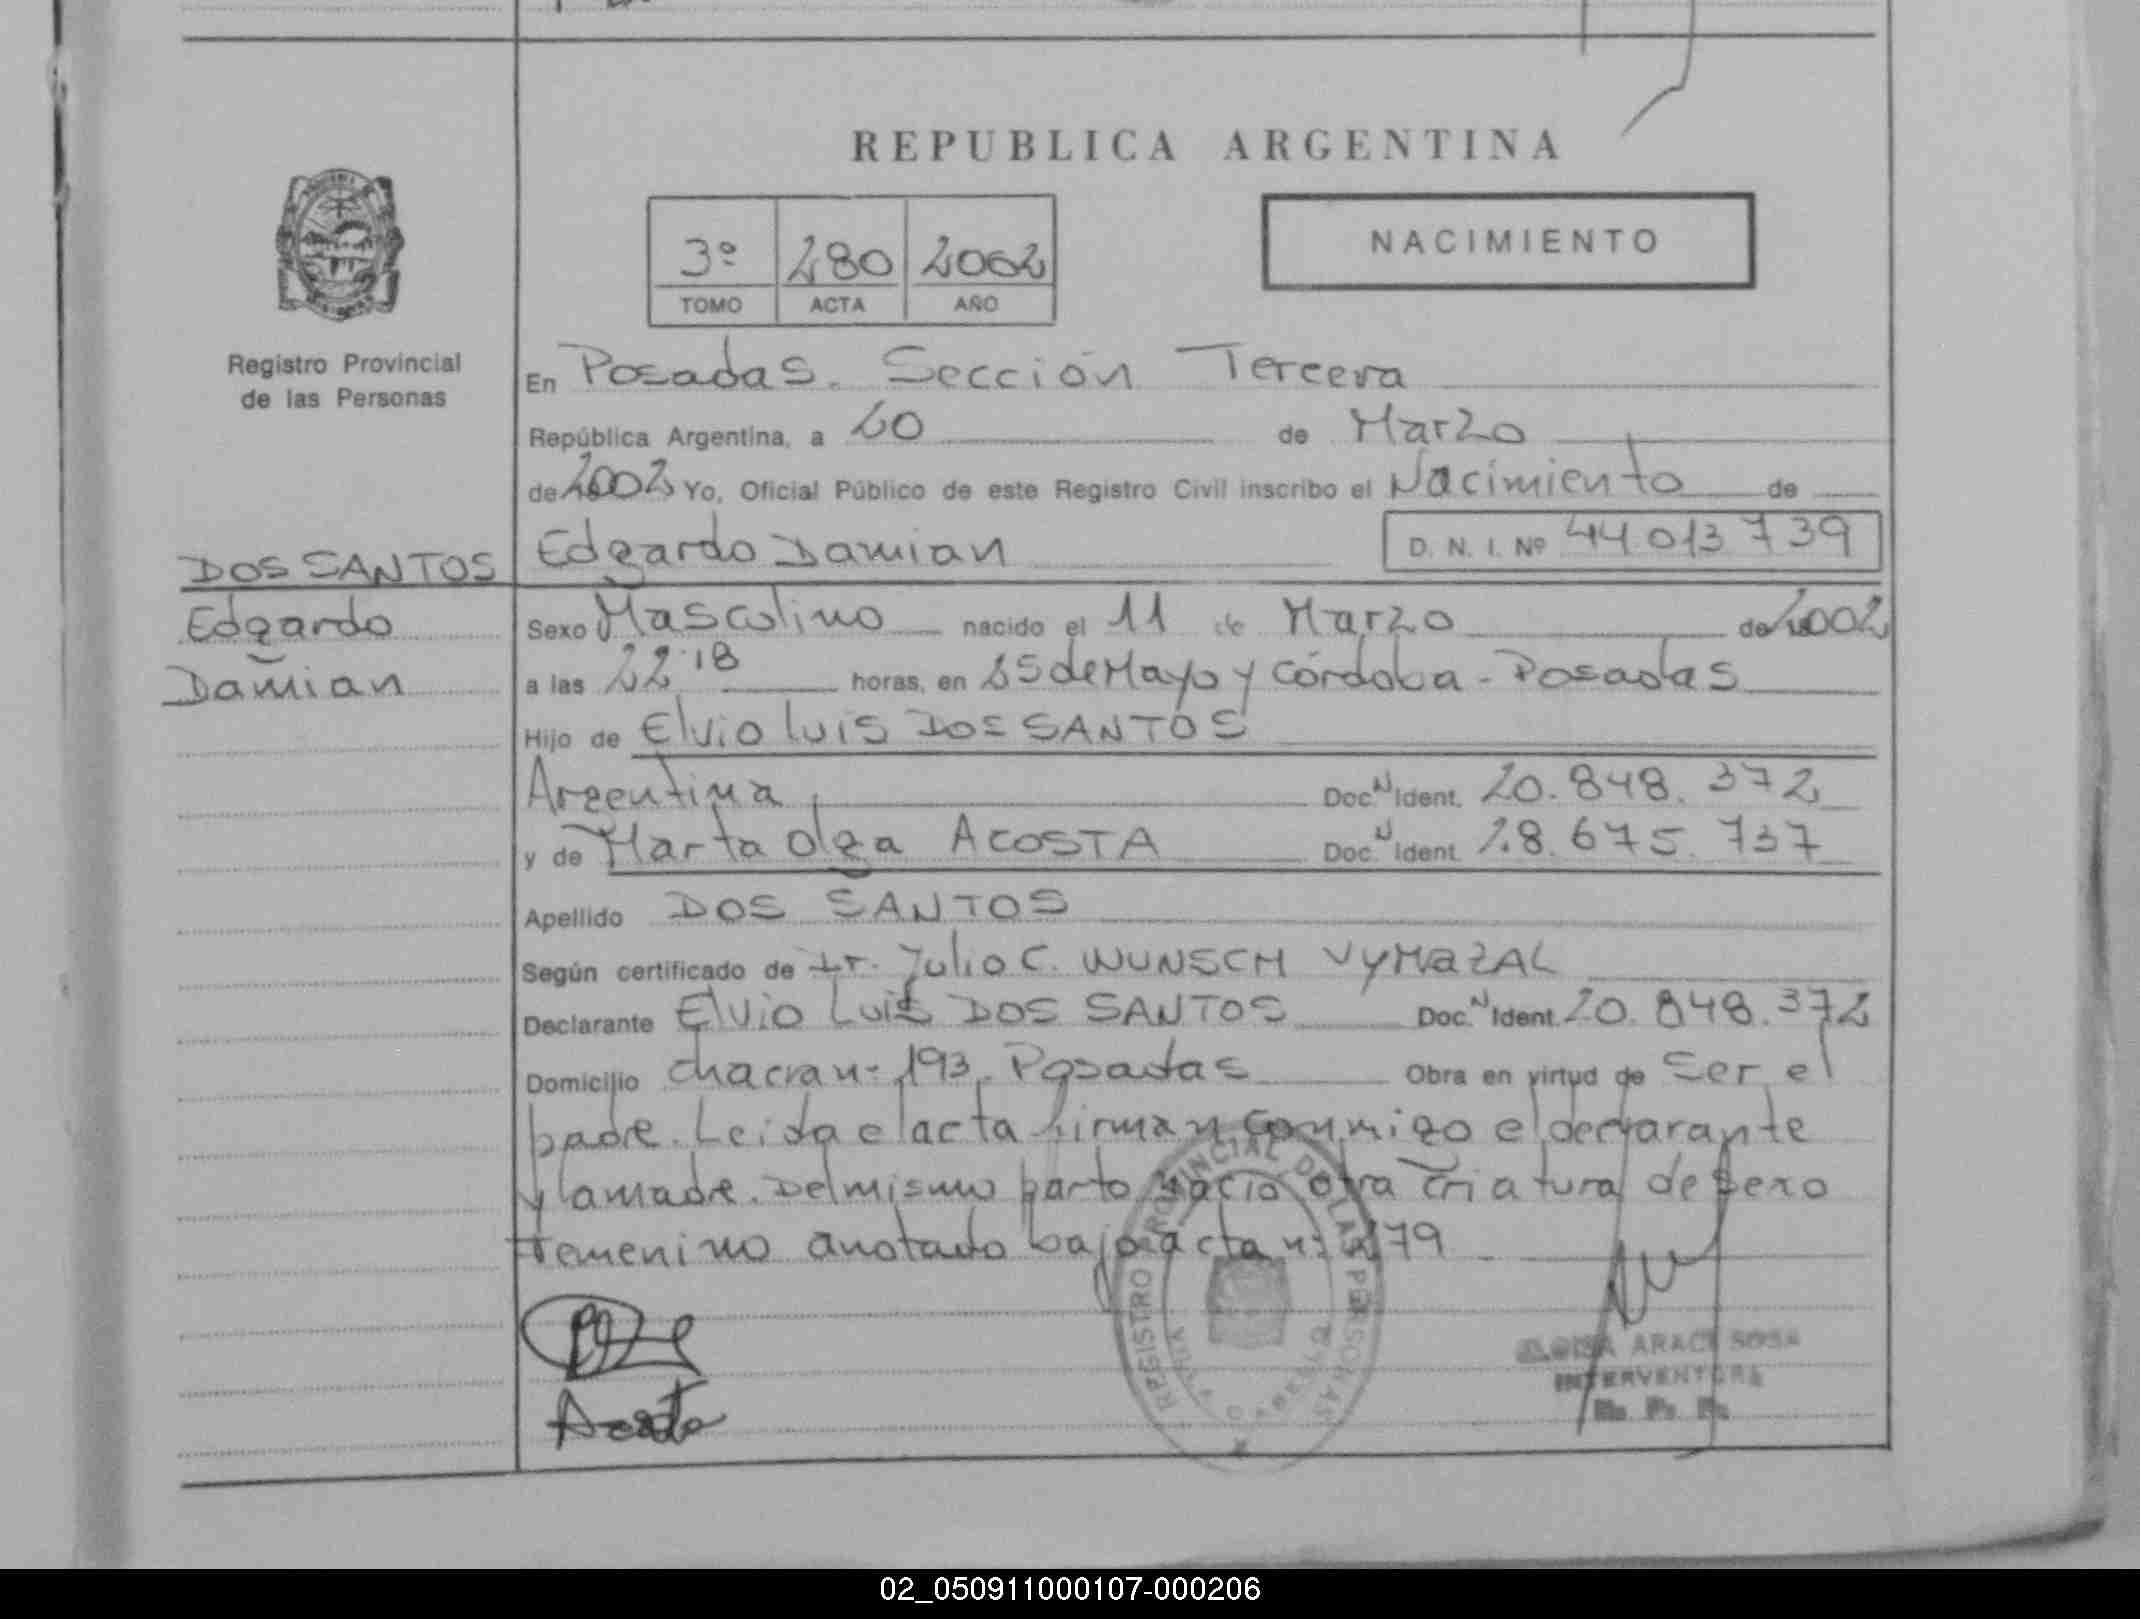 REPUBLICA ARGENTINA
3º 280 2002
TOMO ACTA AÑO
NACIMIENTO
Registro Provincial
de las Personas
DOS SANTOS
Edgardo
Damian
En Posadas. Sección Tercera
República Argentina, a 20 de Marzo
de 2002 Yo, Oficial Público de este Registro Civil inscribo el Nacimiento de
Edgardo Damian D. N. I. Nº 44 013 739
Sexo Masculino nacido el 11 de Marzo de 2002
a las 22 18 horas, en 25 de Mayo y Córdoba - Posadas
Hijo de Elvio Luis DOS SANTOS
Argentina Doc. N Ident. 20.848.372
y de Marta Olga ACOSTA Doc. N Ident. 28.675.737
Apellido DOS SANTOS
Según certificado de Dr. Julio C. WUNSCH VYMAZAL
Declarante Elvio Luis DOS SANTOS Doc. N Ident. 20.848.372
Domicilio chacra nº 193. Posadas Obra en virtud de ser el
padre. Leida el acta firman conmigo el declarante
y la madre. Del mismo parto nacio otra criatura de sexo
femenino anotado bajo acta nº 279
REGISTRO PROVINCIAL DE LAS PERSONAS
Acosta
ARACI SOSA
INTERVENTORA
02_050911000107-000206